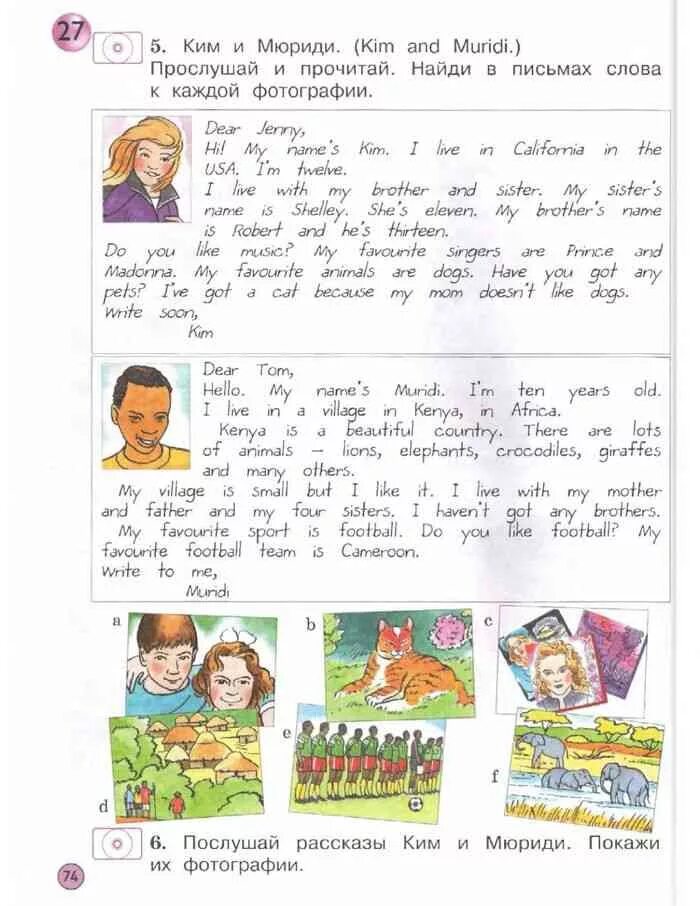 27
5. Ким и Мюриди. (Kim and Muridi.)
Прослушай и прочитай. Найди в письмах слова
к каждой фотографии.
Dear Jenny,
Hi! My name's Kim. I live in California in the
USA. I'm twelve.
I live with my brother and sister. My sister's
name is Shelley. She's eleven. My brother's name
is Robert and he's thirteen.
Do you like music? My favourite singers are Prince and
Madonna. My favourite animals are dogs. Have you got any
pets? I've got a cat because my mom doesn't like dogs.
Write soon,
Kim
Dear Tom,
Hello. My name's Muridi. I'm ten years old.
I live in a village in Kenya, in Africa.
Kenya is a beautiful country. There are lots
of animals – lions, elephants, crocodiles, giraffes
and many others.
My village is small but I like it. I live with my mother
and father and my four sisters. I haven't got any brothers.
My favourite sport is football. Do you like football? My
favourite football team is Cameroon.
Write to me,
Muridi
a
b
c
d
e
f
6. Послушай рассказы Ким и Мюриди. Покажи
их фотографии.
74